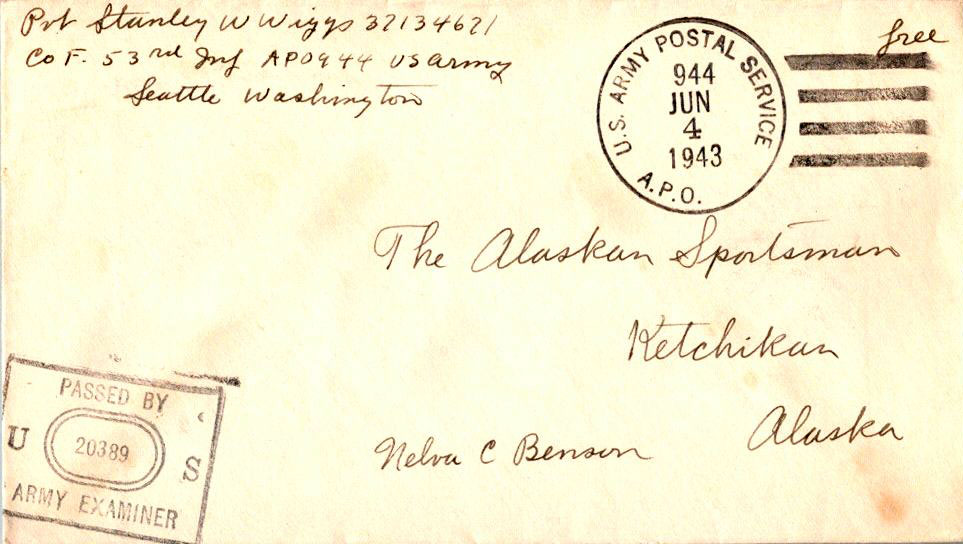 Pvt Stanley W Wiggs 32134621
Co F. 53rd Inf APO944 US Army
Seattle Washington
free
U.S. ARMY POSTAL SERVICE
944
JUN
4
1943
A.P.O.
The Alaskan Sportsman
Ketchikan
Alaska
Nelva C Benson
PASSED BY
U 20389 S
ARMY EXAMINER